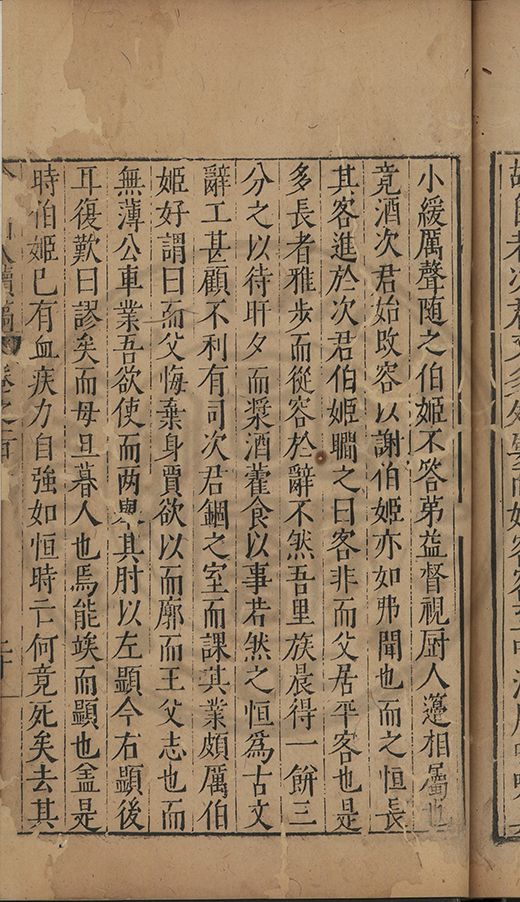 小緩厲聲随之伯姬不答苐益督視厨人籩相屬也
竟酒次君始改容以謝伯姬亦如弗聞也而之恒長
其客進於次君伯姬瞯之曰客非而父居平客也是
多長者雅步而從容於辭不然吾里族晨得一餅三
分之以待旰夕而漿酒藿食以事若然之恒為古文
辭工甚顧不利有司次君錮之室而課其業頗厲伯
姬好謂曰而父悔棄身賈欲以而廓而王父志也而
無薄公車業吾欲使而两舉其肘以左顯今右顯後
耳復歎曰謬矣而母旦暮人也焉能竢而顯也盖是
時伯姬巳有血疾力自強如恒時亡何竟死矣去其
山人續稿 卷之百